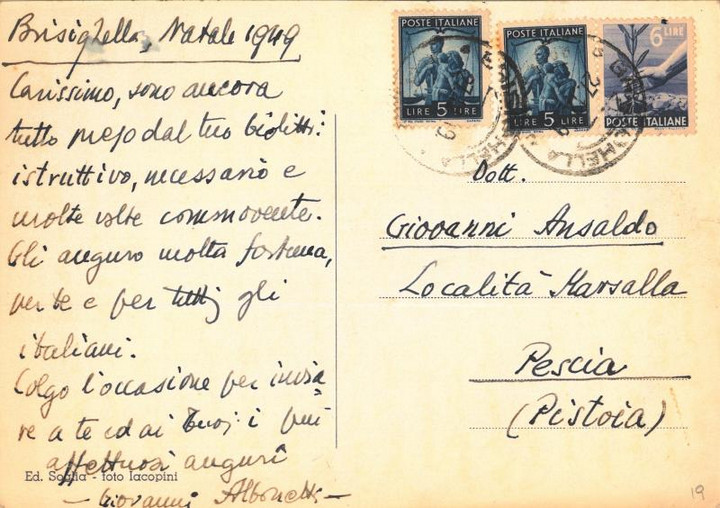 Brisighella, Natale 1949
Carissimo, sono ancora
tutto preso dal tuo Giolitti:
istruttivo, necessario e
molte volte commovente.
Gli auguro molta fortuna,
per te e per tutti gli
italiani.
Colgo l'occasione per invia
re a te ed ai tuoi i più
affettuosi auguri
Giovanni
Ed. Soglia - foto Iacopini
POSTE ITALIANE
LIRE 5 LIRE
POSTE ITALIANE
LIRE 5 LIRE
6 LIRE
POSTE ITALIANE
Dott.
Giovanni Ansaldo
Località Marsalla
Pescia
(Pistoia)
19